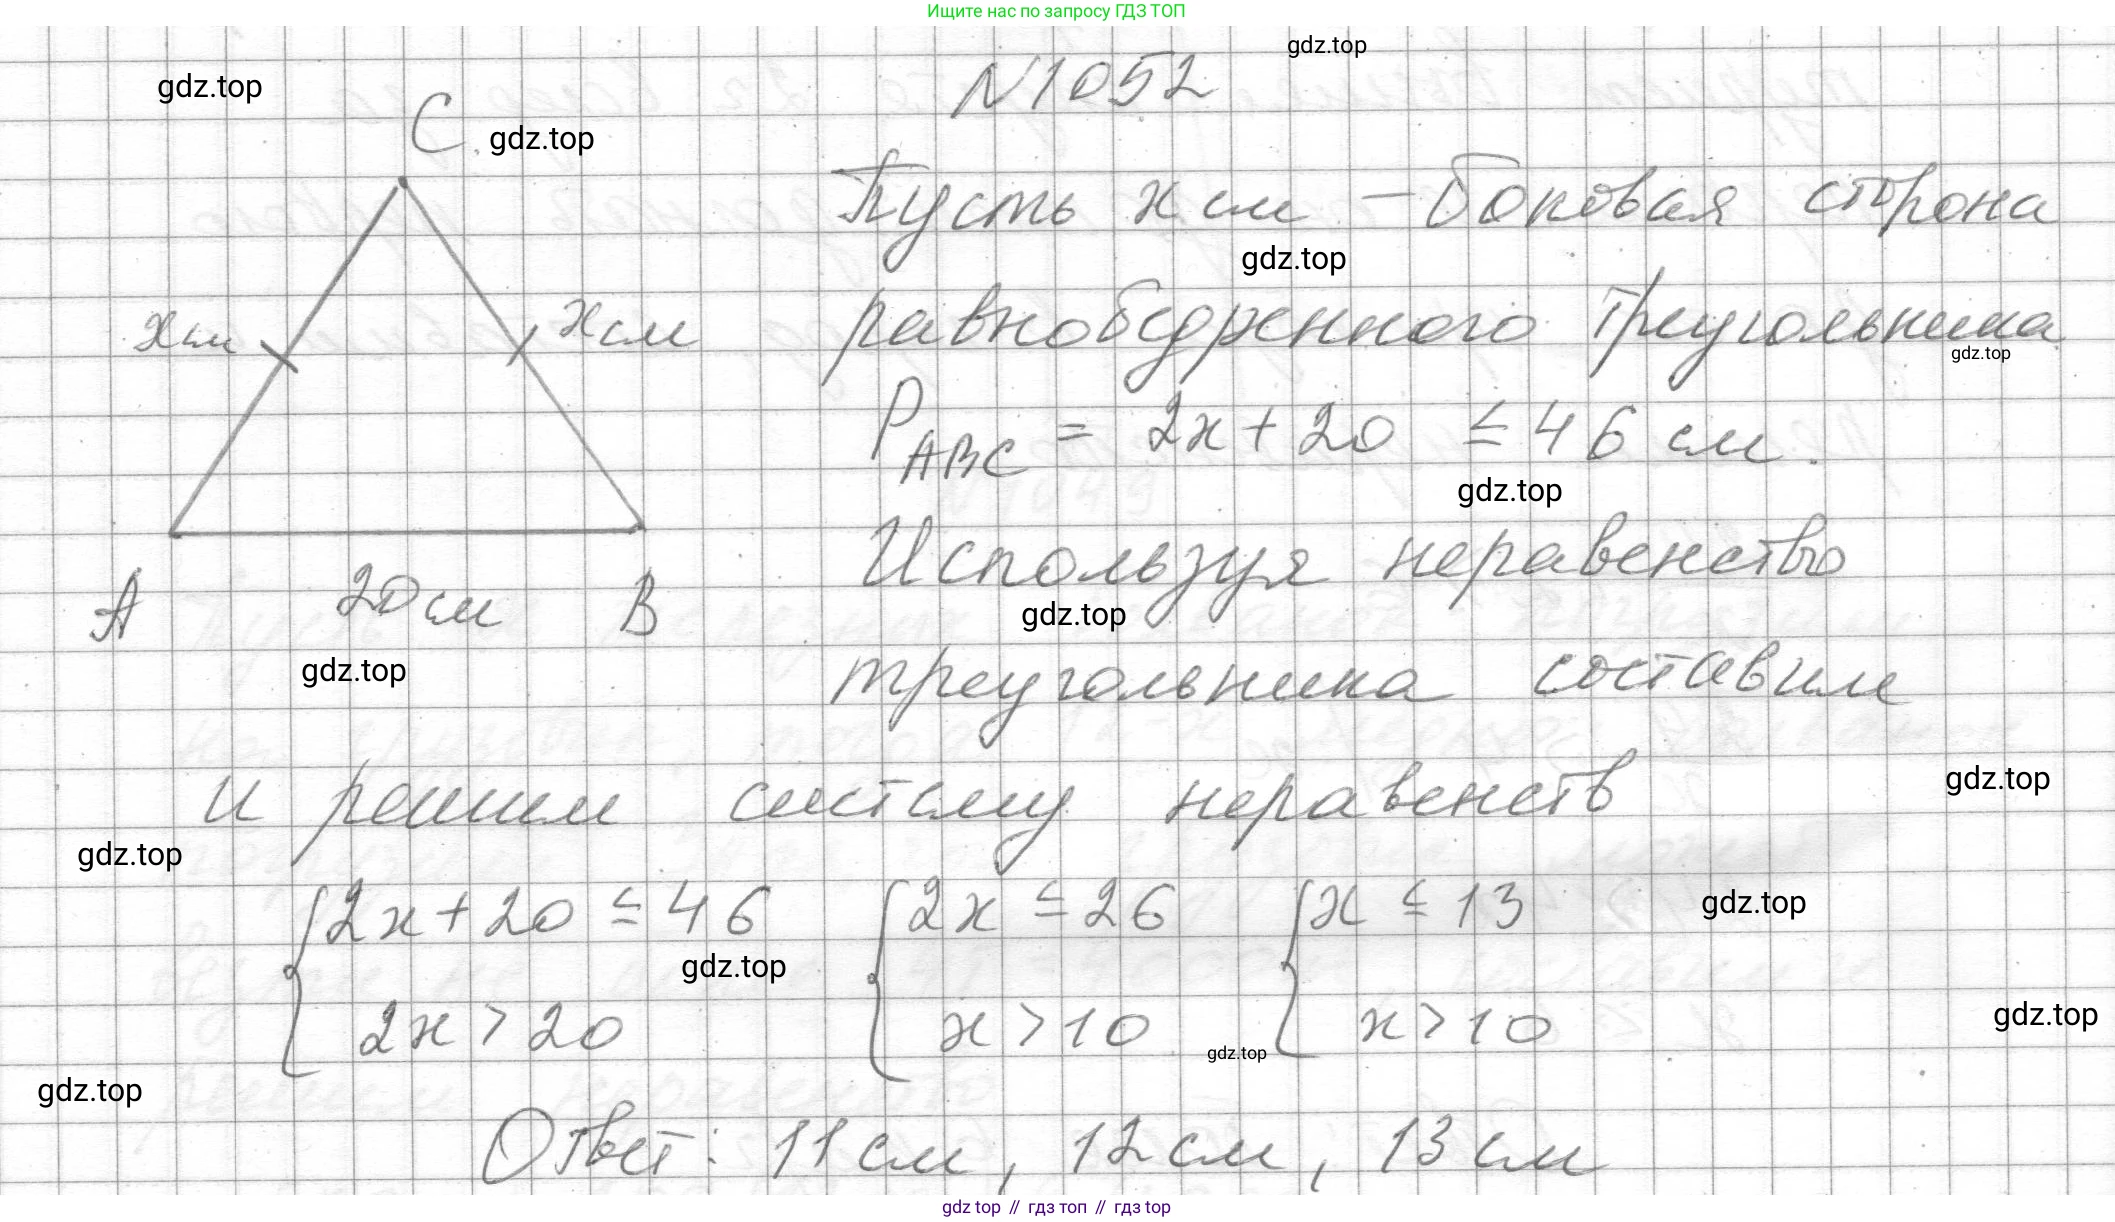 Ищите нас по запросу ГДЗ ТОП
gdz.top
N 1052
gdz.top
C
gdz.top
Пусть x см – боковая сторона
gdz.top
x см
x см
равнобедренного треугольника
gdz.top
P ABC = 2x + 20 ≤ 46 см.
gdz.top
Используя неравенство
A 20 см B
gdz.top
gdz.top
треугольника составим
и решим систему неравенств
gdz.top
gdz.top
{ 2x + 20 ≤ 46 { 2x ≤ 26 { x ≤ 13
gdz.top
gdz.top
2x > 20 x > 10 x > 10
gdz.top
gdz.top
gdz.top
Ответ: 11 см, 12 см, 13 см
gdz top // гдз топ // гдз top